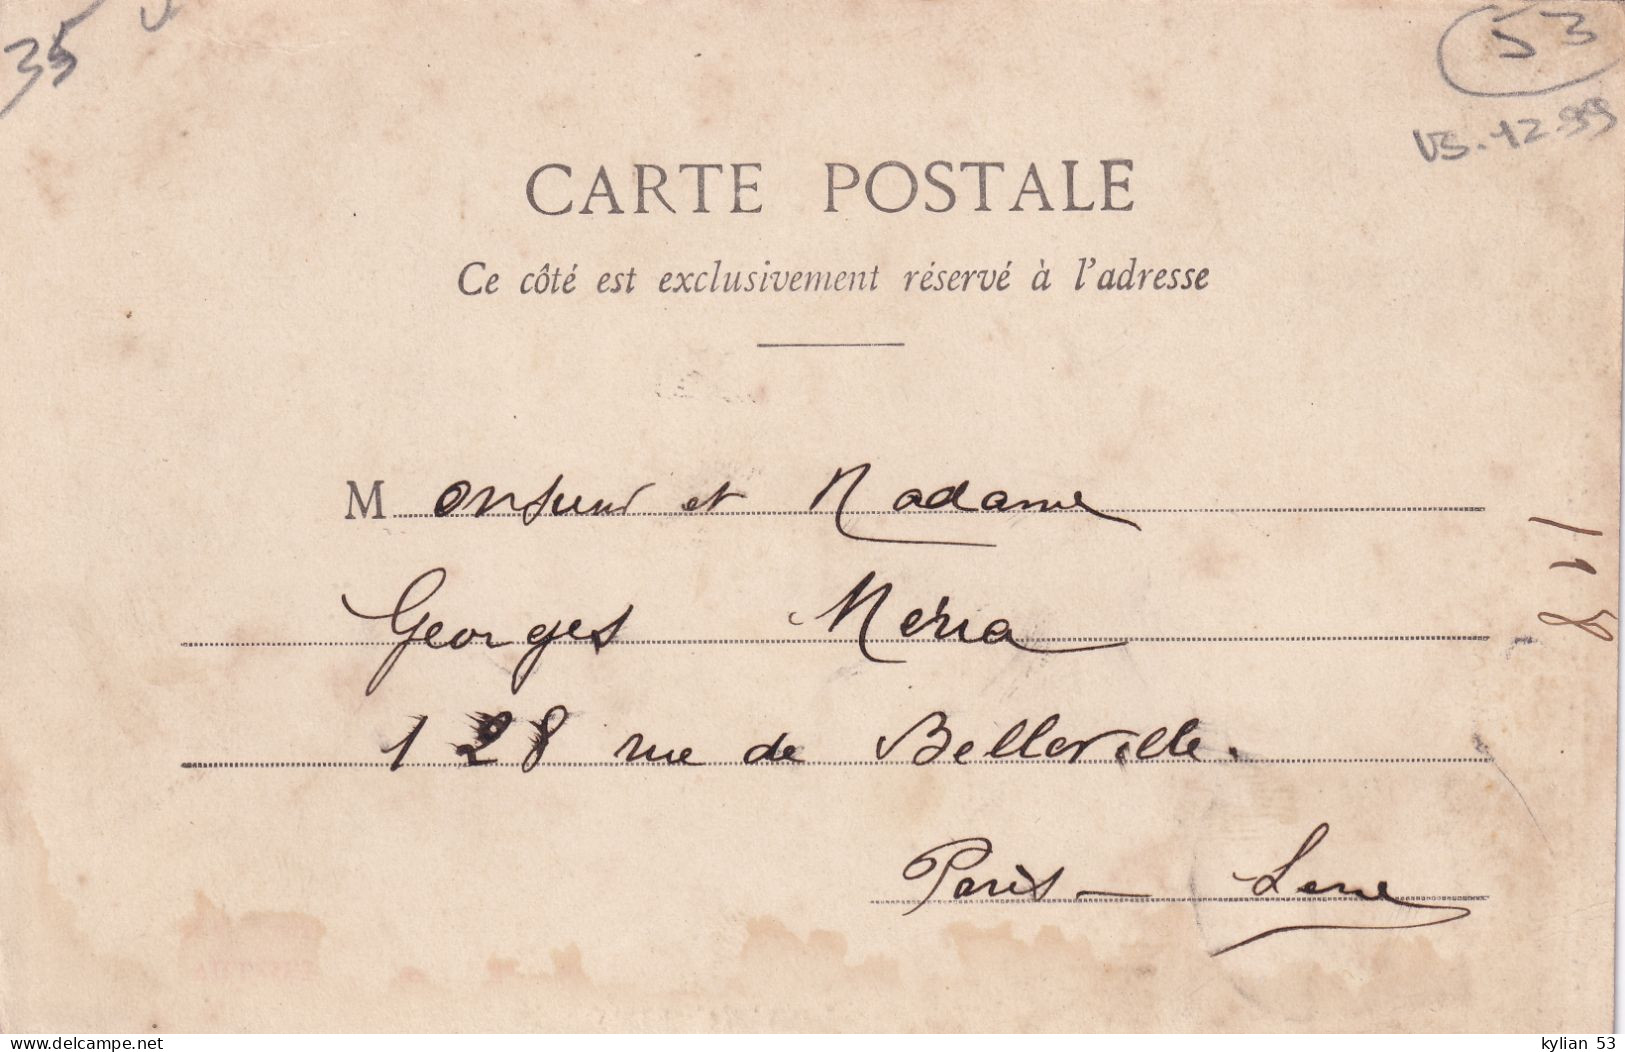 35
53
VS.12.99
CARTE POSTALE
Ce côté est exclusivement réservé à l'adresse
Monsieur et Madame
Georges Méria
128 rue de Belleville.
Paris —
118
delcampe.net
kylian 53